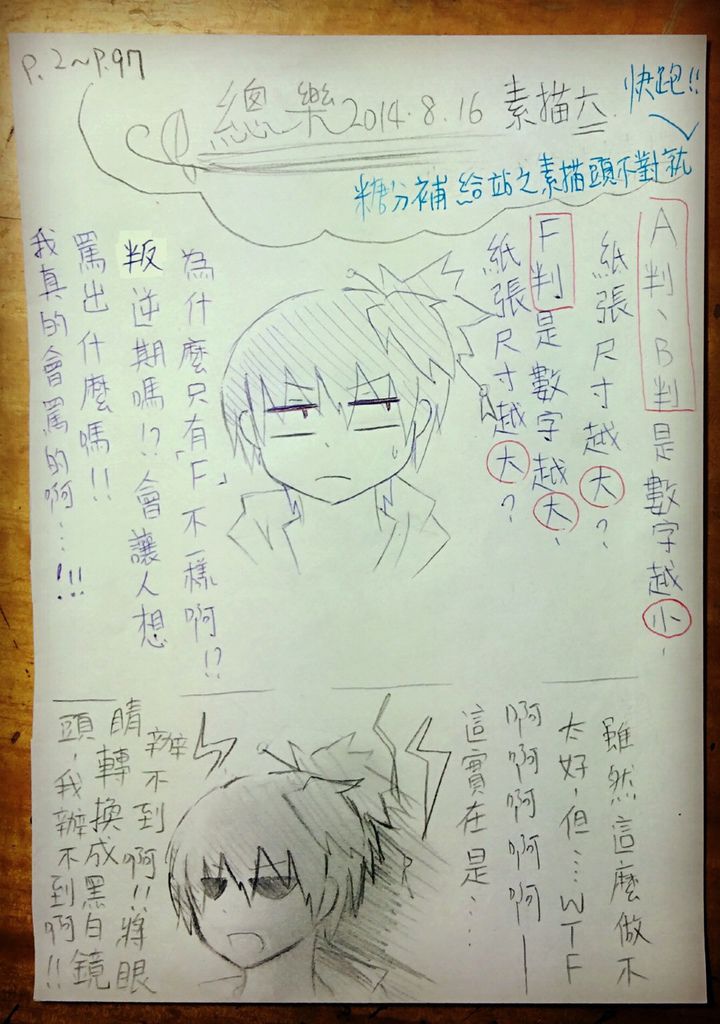 P.2~P.97
總樂 2014.8.16 素描六
快跑!!
糖分補給站之素描頭不對就
A判、B判是數字越小、
紙張尺寸越大？
F判是數字越大、
紙張尺寸越大？
為什麼只有「F」不一樣啊!?
叛逆期嗎!?會讓人想
罵出什麼嗎!!
我真的會罵的啊…!!!
雖然這麼做不
太好，但…WTF
啊啊啊啊啊—
這實在是…
辦不到啊!!將眼
睛轉換成黑白鏡
頭，我辦不到啊!!